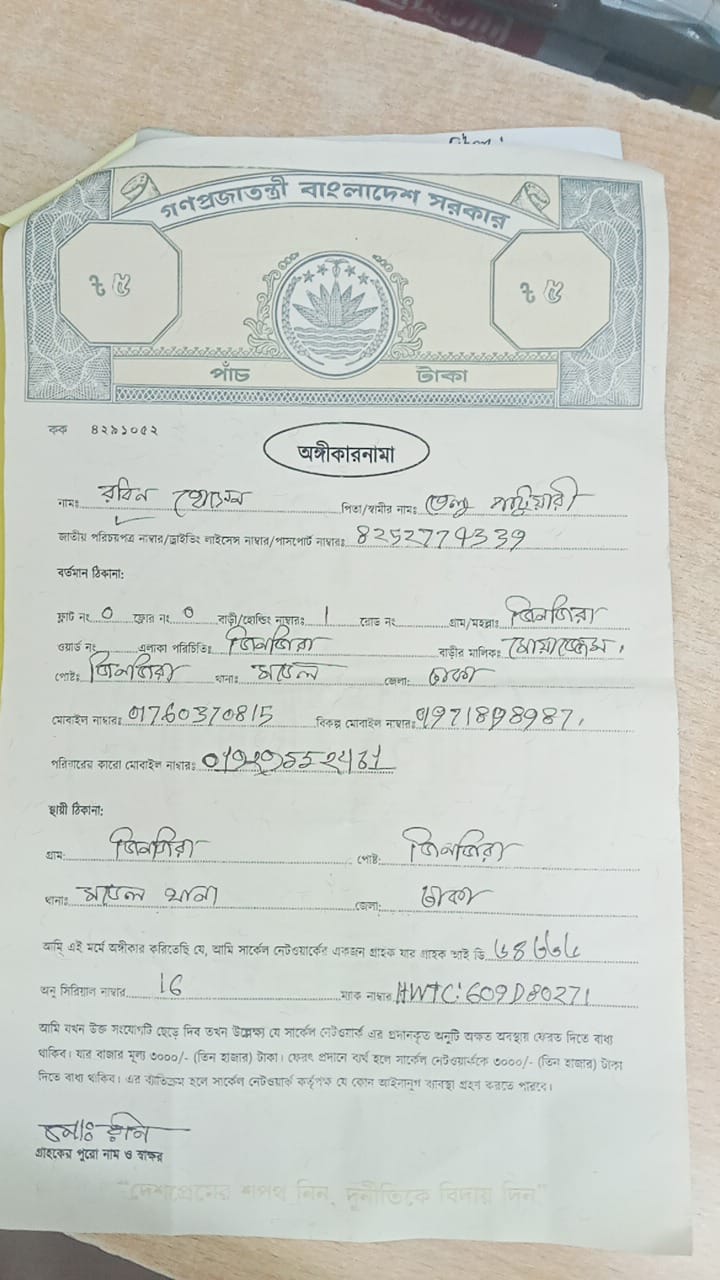 গণপ্রজাতন্ত্রী বাংলাদেশ সরকার
৳ ৫ ৳ ৫
পাঁচ টাকা
কক ৪২৯১০৫২
অঙ্গীকারনামা
নামঃ রবিন হোসেন পিতা/স্বামীর নামঃ পাটুয়ারী
জাতীয় পরিচয়পত্র নাম্বার/ড্রাইভিং লাইসেন্স নাম্বার/পাসপোর্ট নাম্বারঃ 8252774339
বর্তমান ঠিকানা:
ফ্লাট নং 0 ফ্লোর নং 0 বাড়ী/হোল্ডিং নাম্বারঃ 1 রোড নং গ্রাম/মহল্লাঃ জিনজিরা
ওয়ার্ড নং এলাকা পরিচিতিঃ জিনজিরা বাড়ীর মালিকঃ মোয়াজ্জেম
পোষ্টঃ জিনজিরা থানাঃ মডেল জেলা: ঢাকা
মোবাইল নাম্বারঃ 01760370815 বিকল্প মোবাইল নাম্বারঃ
পরিবারের কারো মোবাইল নাম্বারঃ
স্থায়ী ঠিকানা:
গ্রাম: জিনজিরা পোষ্ট: জিনজিরা
থানাঃ মডেল থানা জেলা: ঢাকা
আমি এই মর্মে অঙ্গীকার করিতেছি যে, আমি সার্কেল নেটওয়ার্কের একজন গ্রাহক যার গ্রাহক আই ডি
অনু সিরিয়াল নাম্বার 16 ম্যাক নাম্বার HWTC:609D80271
আমি যখন উক্ত সংযোগটি ছেড়ে দিব তখন উল্লেক্ষ্য যে সার্কেল নেটওয়ার্ক এর প্রদানকৃত অনুটি অক্ষত অবস্থায় ফেরত দিতে বাধ্য
থাকিব। যার বাজার মূল্য ৩০০০/- (তিন হাজার) টাকা। ফেরৎ প্রদানে ব্যর্থ হলে সার্কেল নেটওয়ার্ককে ৩০০০/- (তিন হাজার) টাকা
দিতে বাধ্য থাকিব। এর ব্যতিক্রম হলে সার্কেল নেটওয়ার্ক কর্তৃপক্ষ যে কোন আইনানুগ ব্যবস্থা গ্রহণ করতে পারবে।
মোঃ রনি
গ্রাহকের পুরো নাম ও স্বাক্ষর
"দেশপ্রেমের শপথ নিন, দুর্নীতিকে বিদায় দিন"